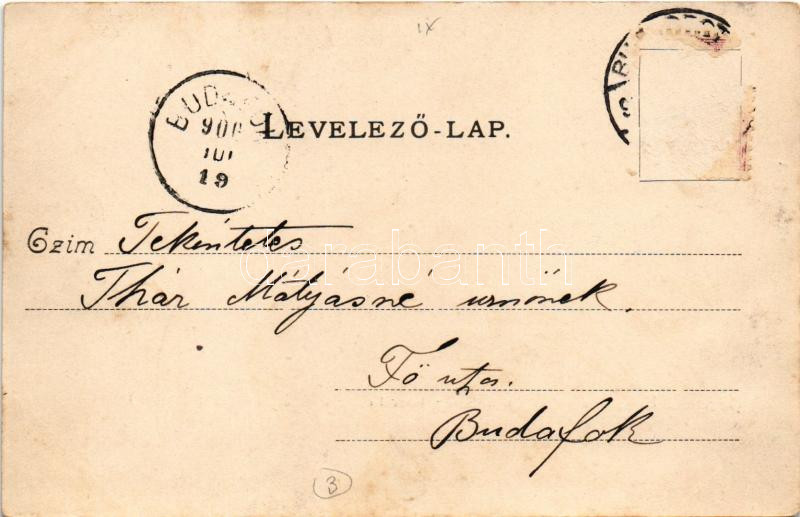 IX
BUDAFOK
900
JUL
19
LEVELEZŐ-LAP.
Czim Tekintetes
Thár Mátyásné urnőnek.
Fő utca.
Budafok
3
darabanth